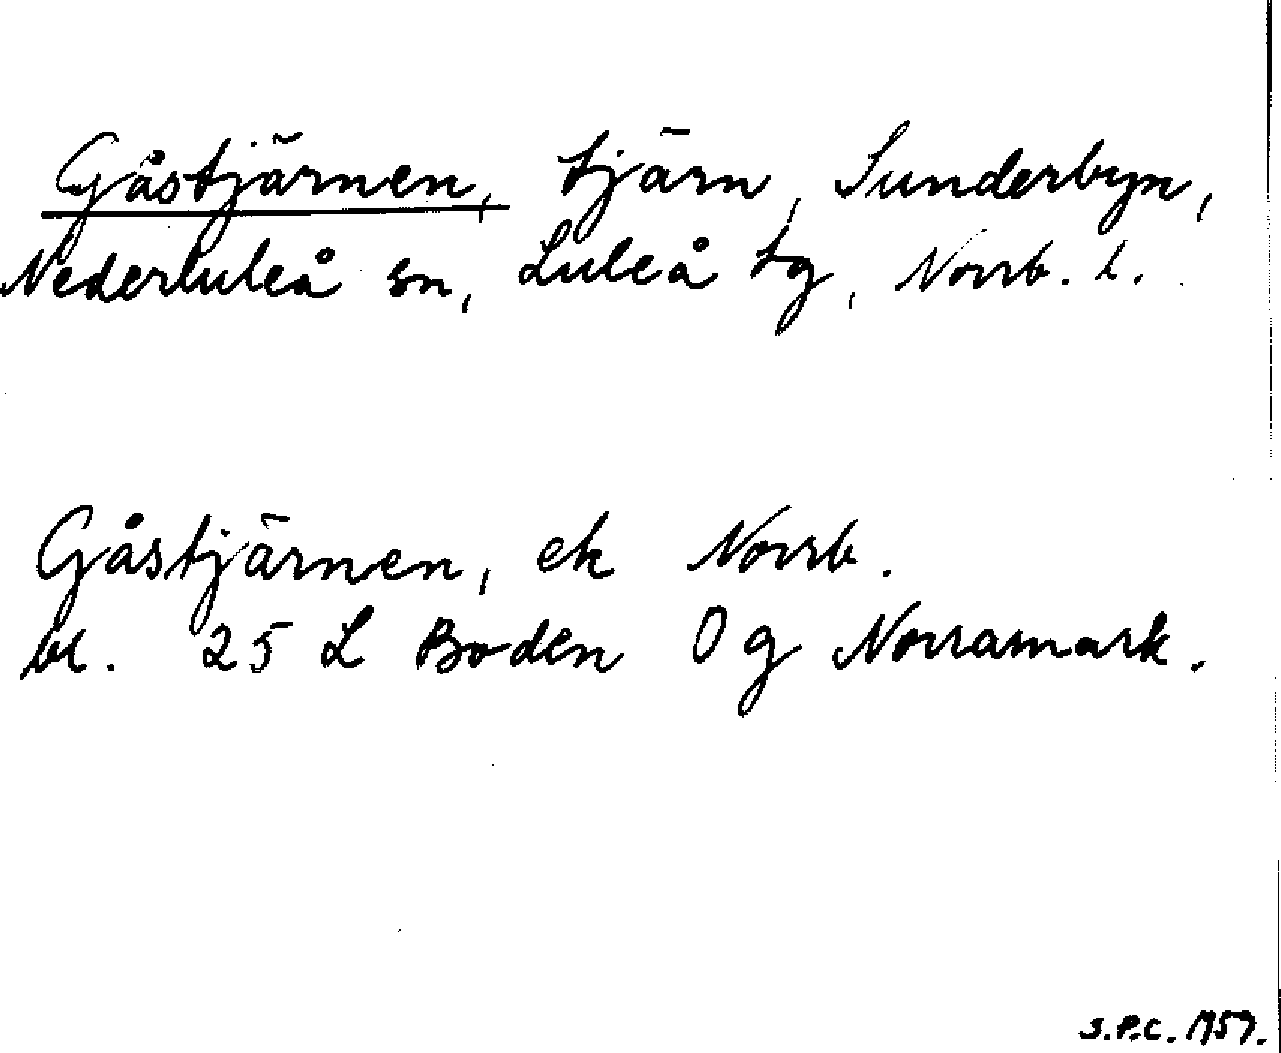 Gåstjärnen, tjärn, Sunderbyn,
Nederluleå sn, Luleå tg, Norrb. l.
Gåstjärnen, ek Norrb.
bl. 25 L Boden O g Norramark.
S.P.C. 1957.